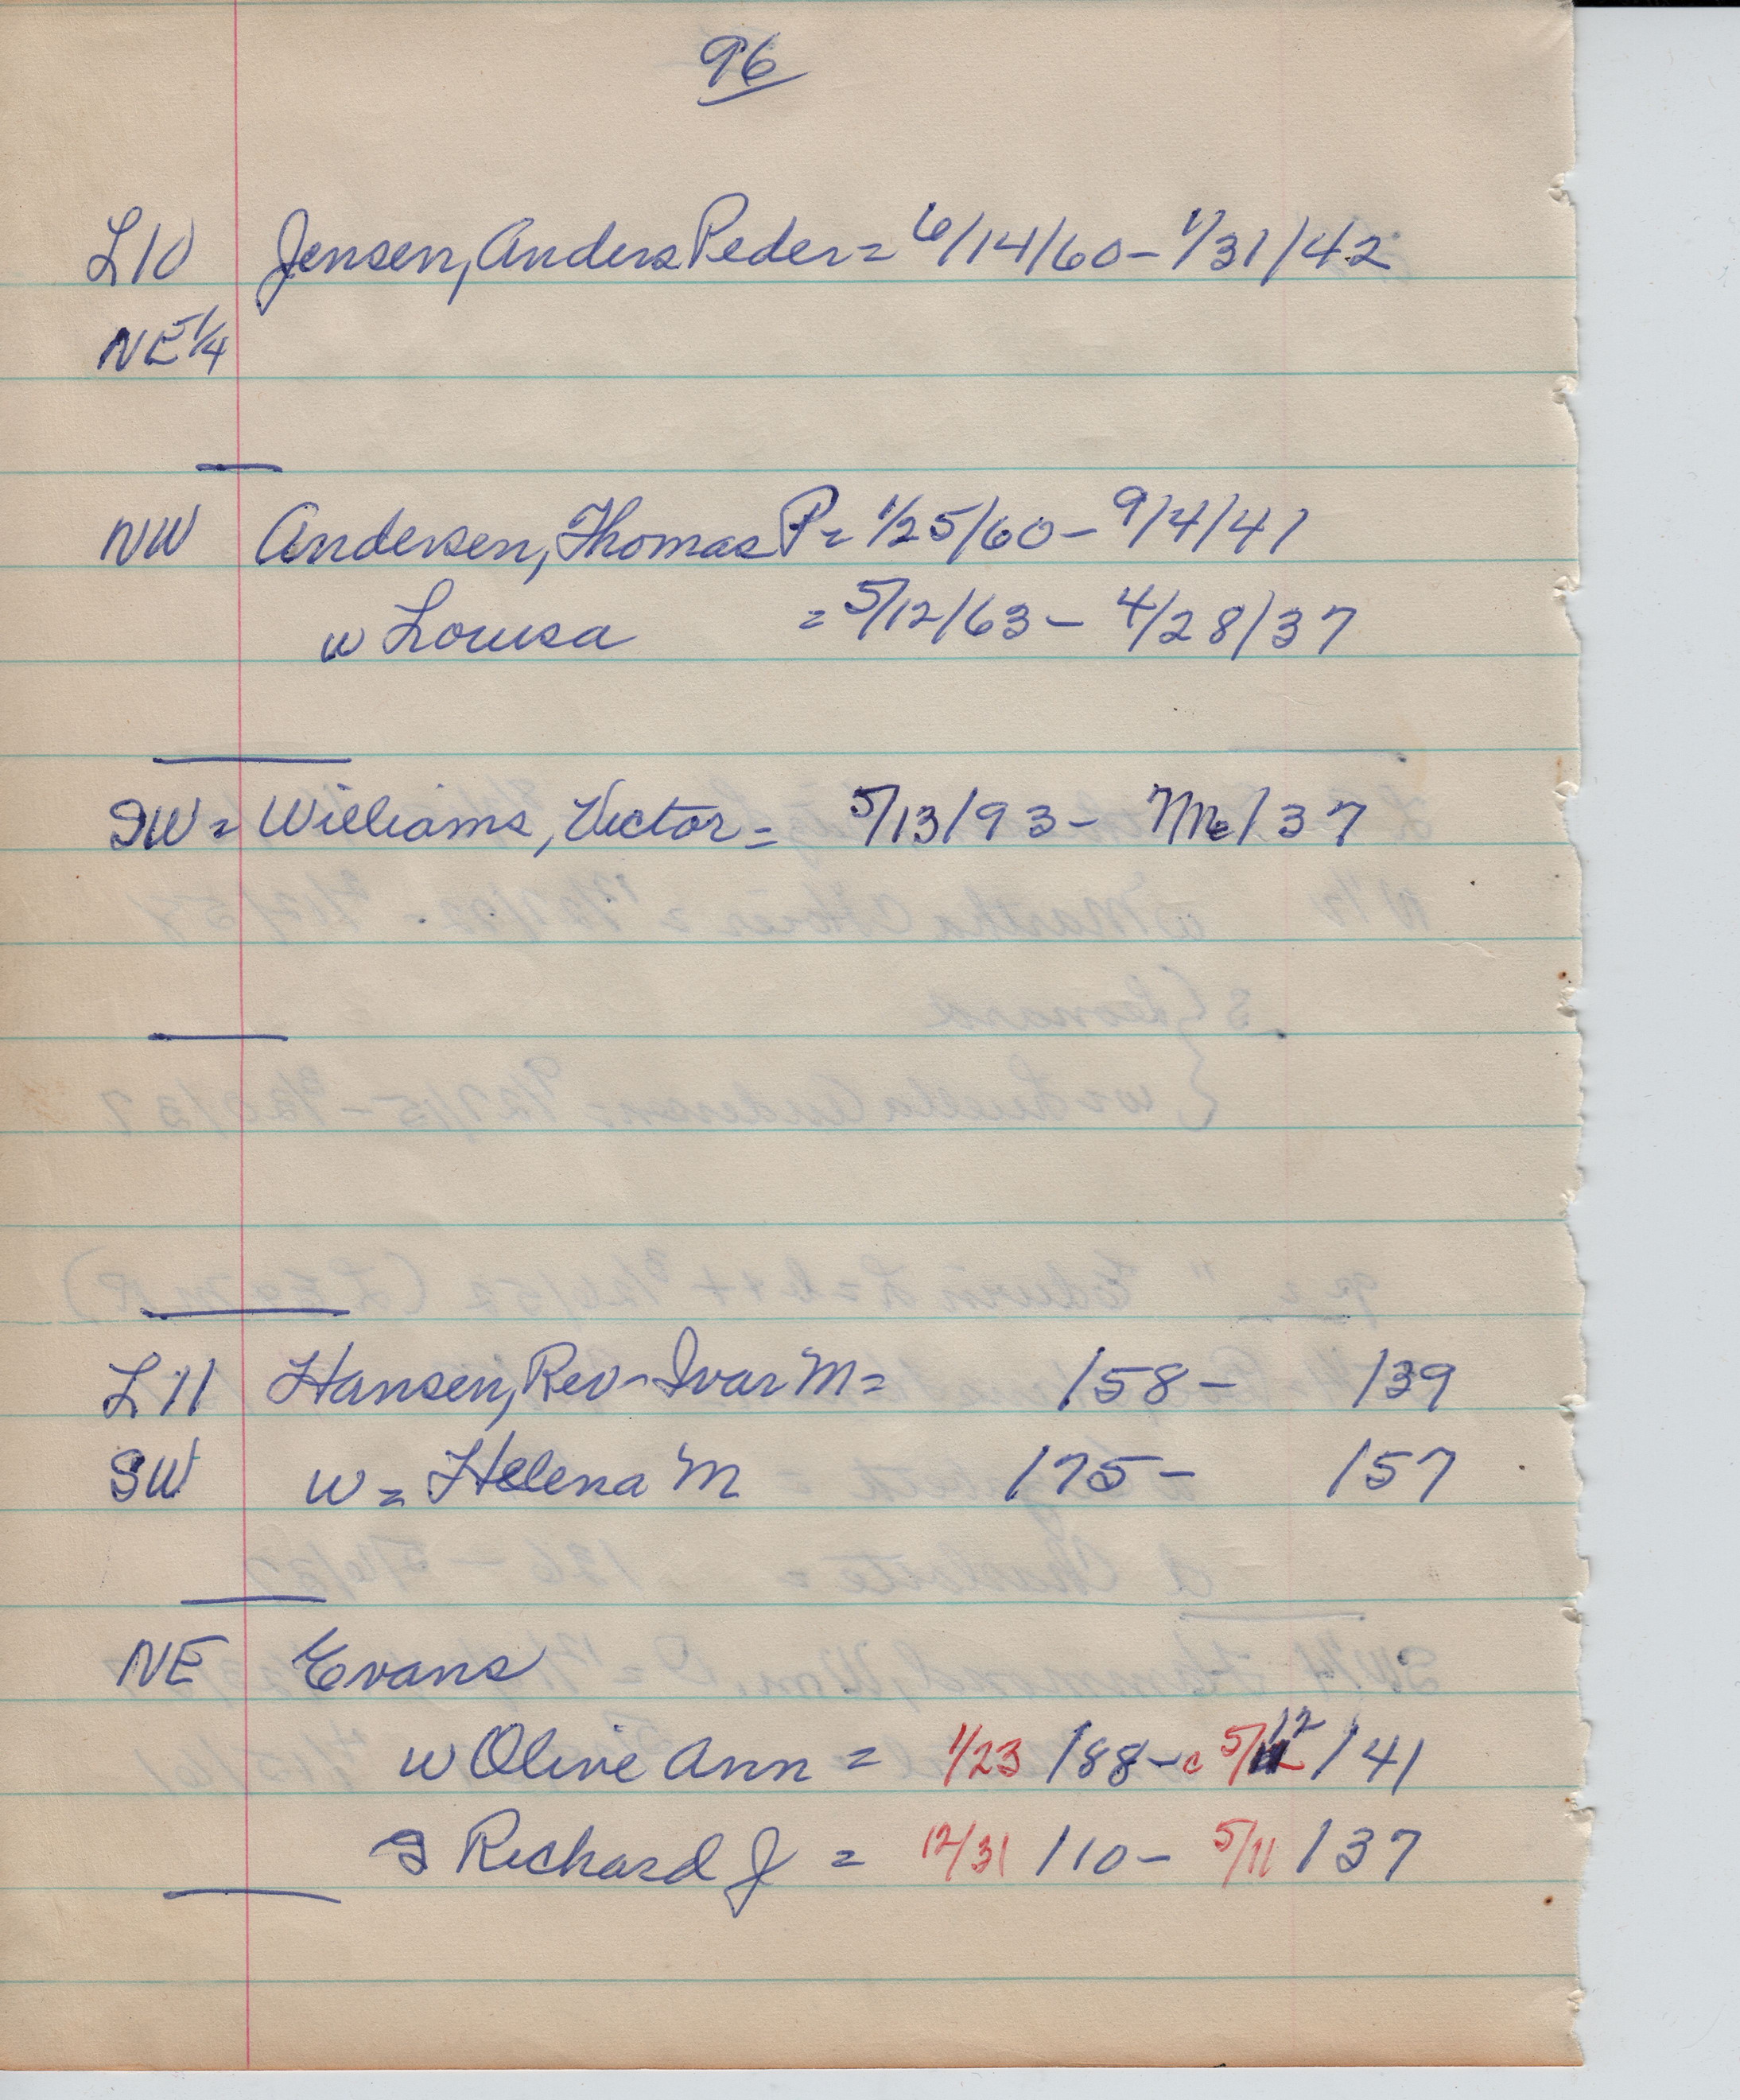 96
L10 Jensen, Anders Peder = 6/14/60 - 1/31/42
NE 1/4
NW Andersen, Thomas P = 1/25/60 - 9/4/41
w Louisa = 5/12/63 - 4/28/37
SW = Williams, Victor = 5/13/93 - /37
L11 Hansen, Rev - Ivar M = /58 - /39
SW w = Helena M /75 - /57
NE Evans
w Olive Ann = 1/23 /88 - c 5/12 /41
s Richard J = 12/31 /10 - 5/11 /37